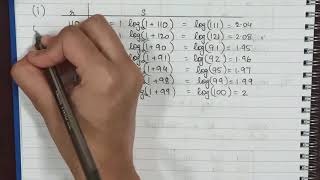 (i) r s
110 = 1. log(1+110) = log(111) = 2.04
= 1. log(1+120) = log(121) = 2.08
log(1+90) = log(91) = 1.95
log(1+91) = log(92) = 1.96
log(1+94) = log(95) = 1.97
log(1+98) = log(99) = 1.99
log(1+99) = log(100) = 2